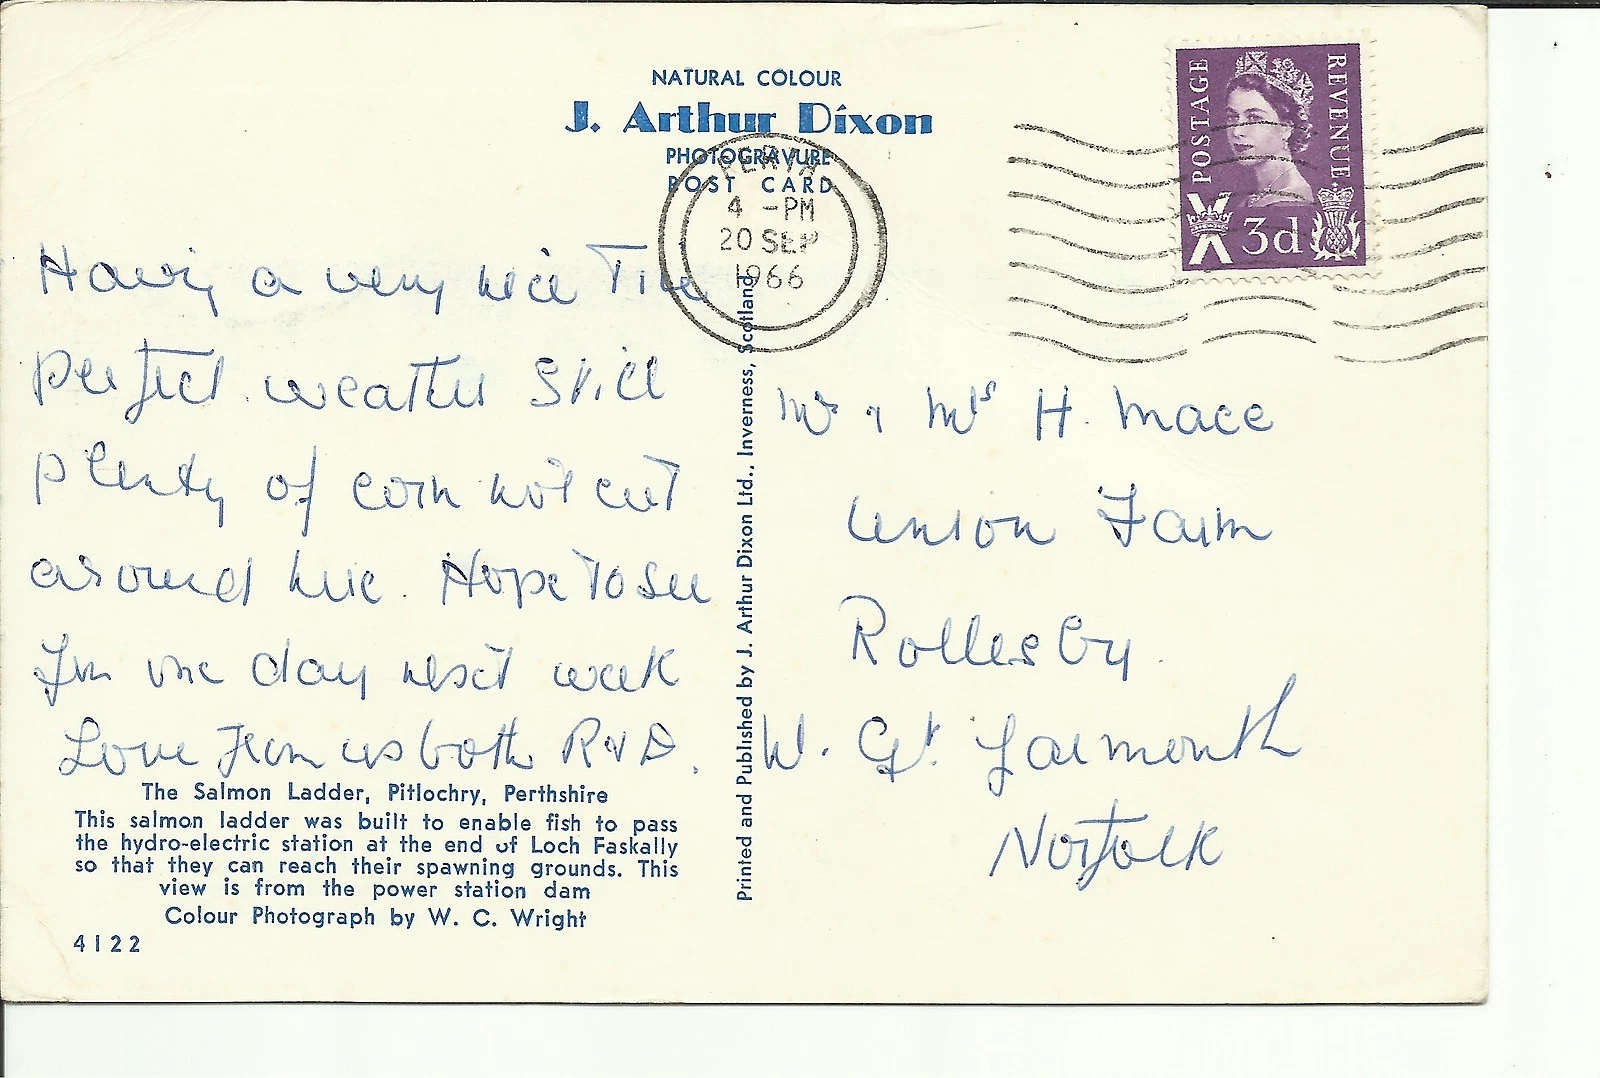 NATURAL COLOUR
J. Arthur Dixon
PHOTOGRAVURE
POST CARD
PERTH
4 -PM
20 SEP
1966
POSTAGE
REVENUE
3d
Having a very nice Time
perfect weather Still
plenty of corn not cut
around here. Hope to See
you one day next week
Love from us both R & D.
The Salmon Ladder, Pitlochry, Perthshire
This salmon ladder was built to enable fish to pass
the hydro-electric station at the end of Loch Faskally
so that they can reach their spawning grounds. This
view is from the power station dam
Colour Photograph by W. C. Wright
4122
Printed and Published by J. Arthur Dixon Ltd., Inverness, Scotland
Mr & Mrs H. Mace
Union Farm
Rollesby.
W. Gt Yarmouth
Norfolk